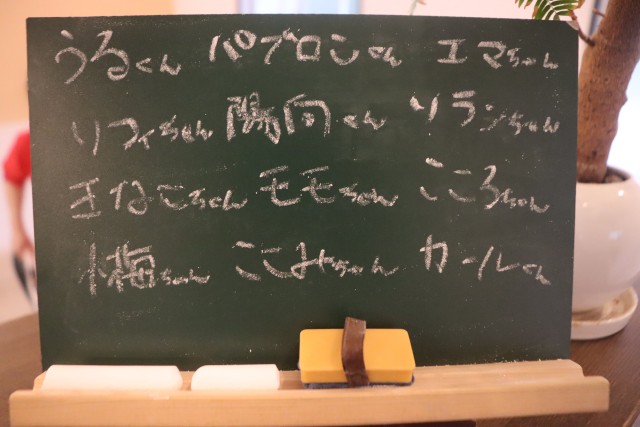 うるくん パブロンくん エマちゃん
リフィちゃん 陽向くん ソランちゃん
きなこちゃん モモちゃん こころちゃん
小梅ちゃん こみちゃん カールくん